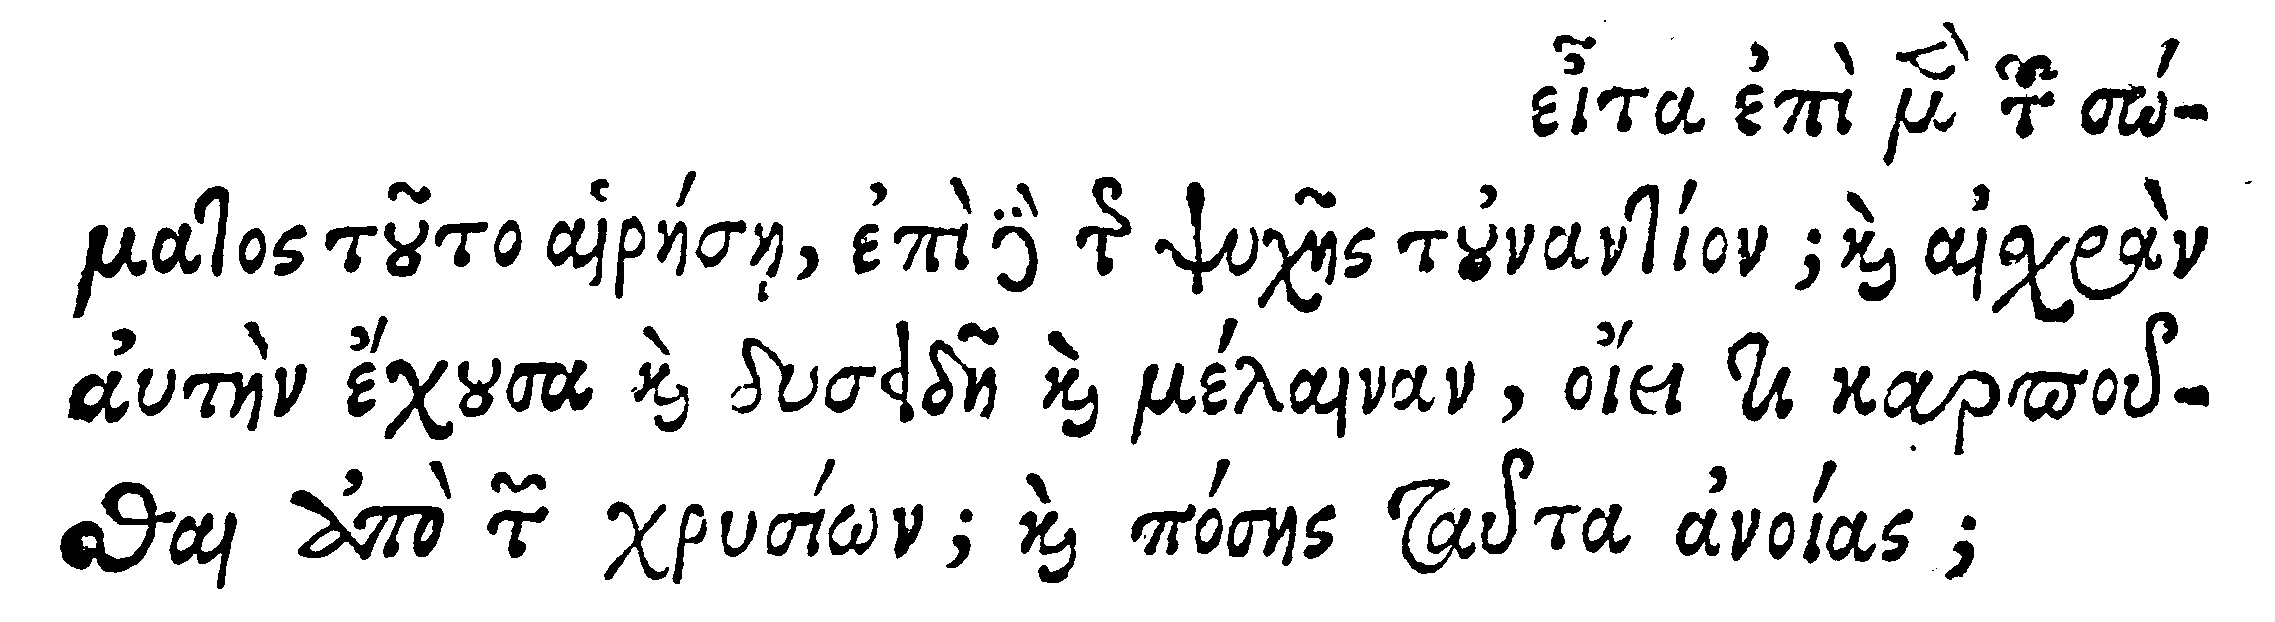 εἶτα ἐπὶ μὲν τοῦ σώ-
ματος τοῦτο αἱρήσῃ, ἐπὶ δὲ τῆς ψυχῆς τοὐναντίον; καὶ αἰσχρὰν
αὐτὴν ἔχουσα καὶ δυσειδῆ καὶ μέλαιναν, οἴει τι καρποῦ-
σθαι ἀπὸ τῶν χρυσίων; καὶ πόσης ταῦτα ἀνοίας;